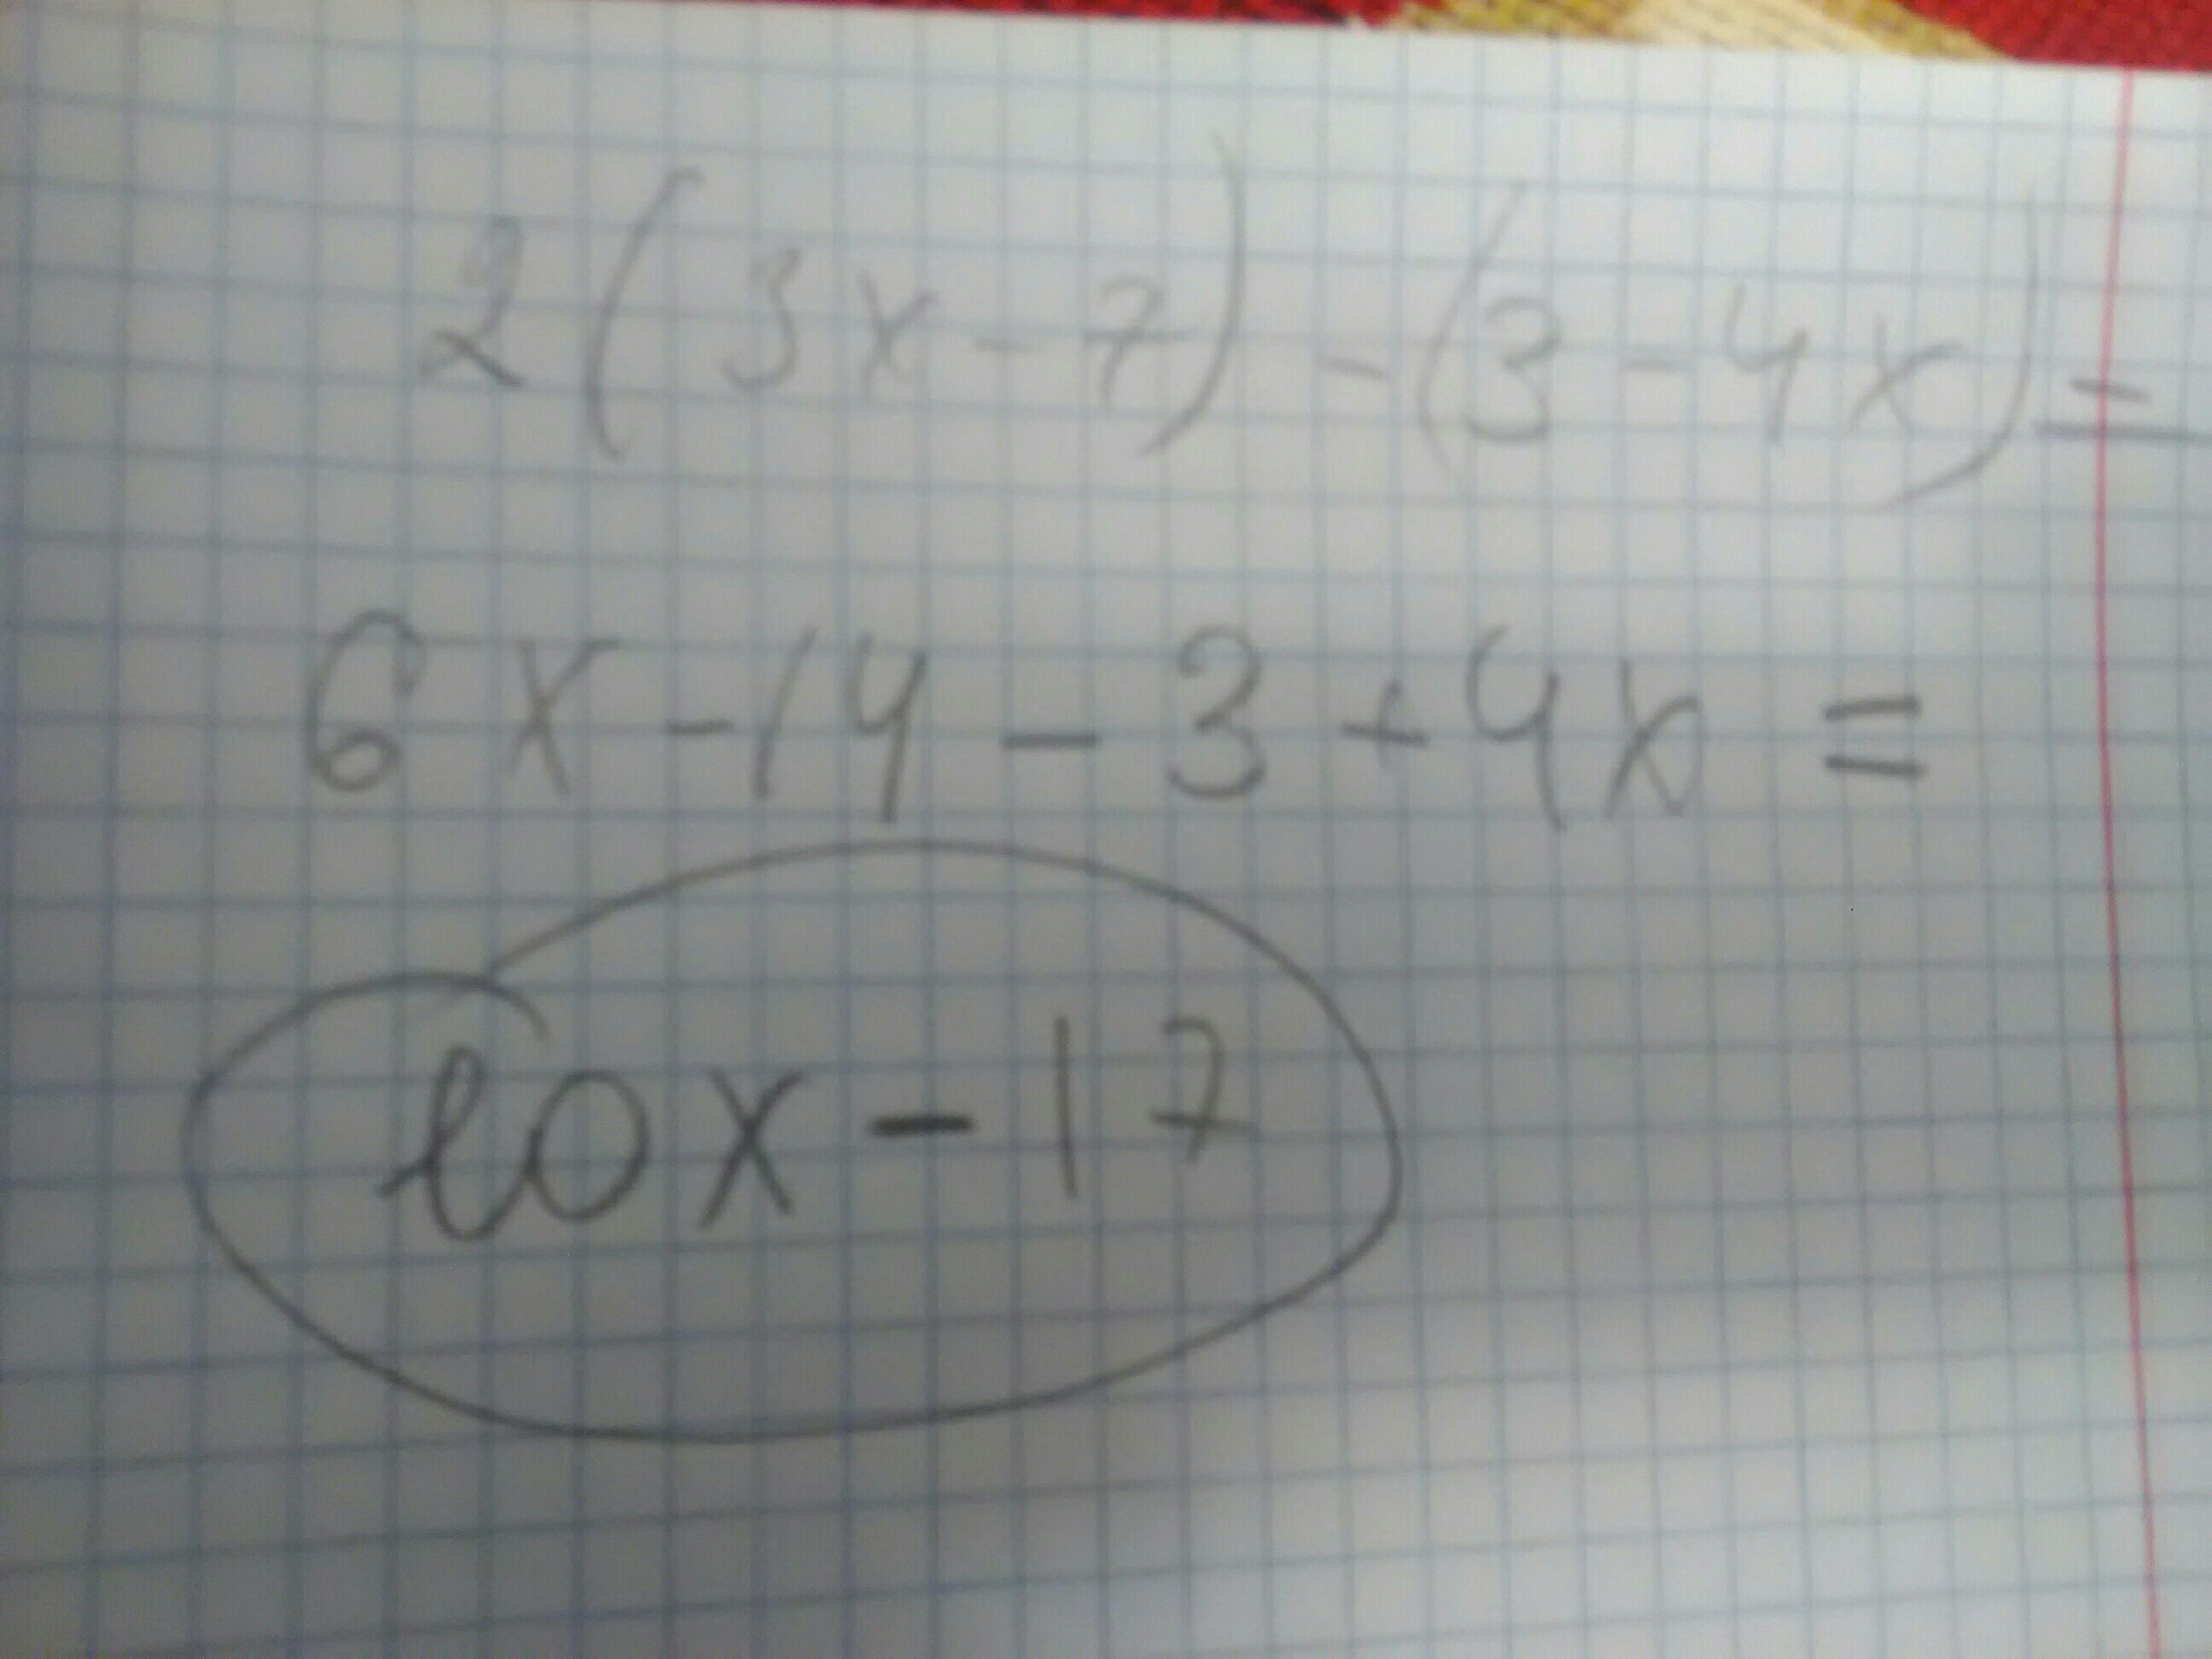 2(3x-7)-(3-4x)=
6x-14-3+4x=
10x-17